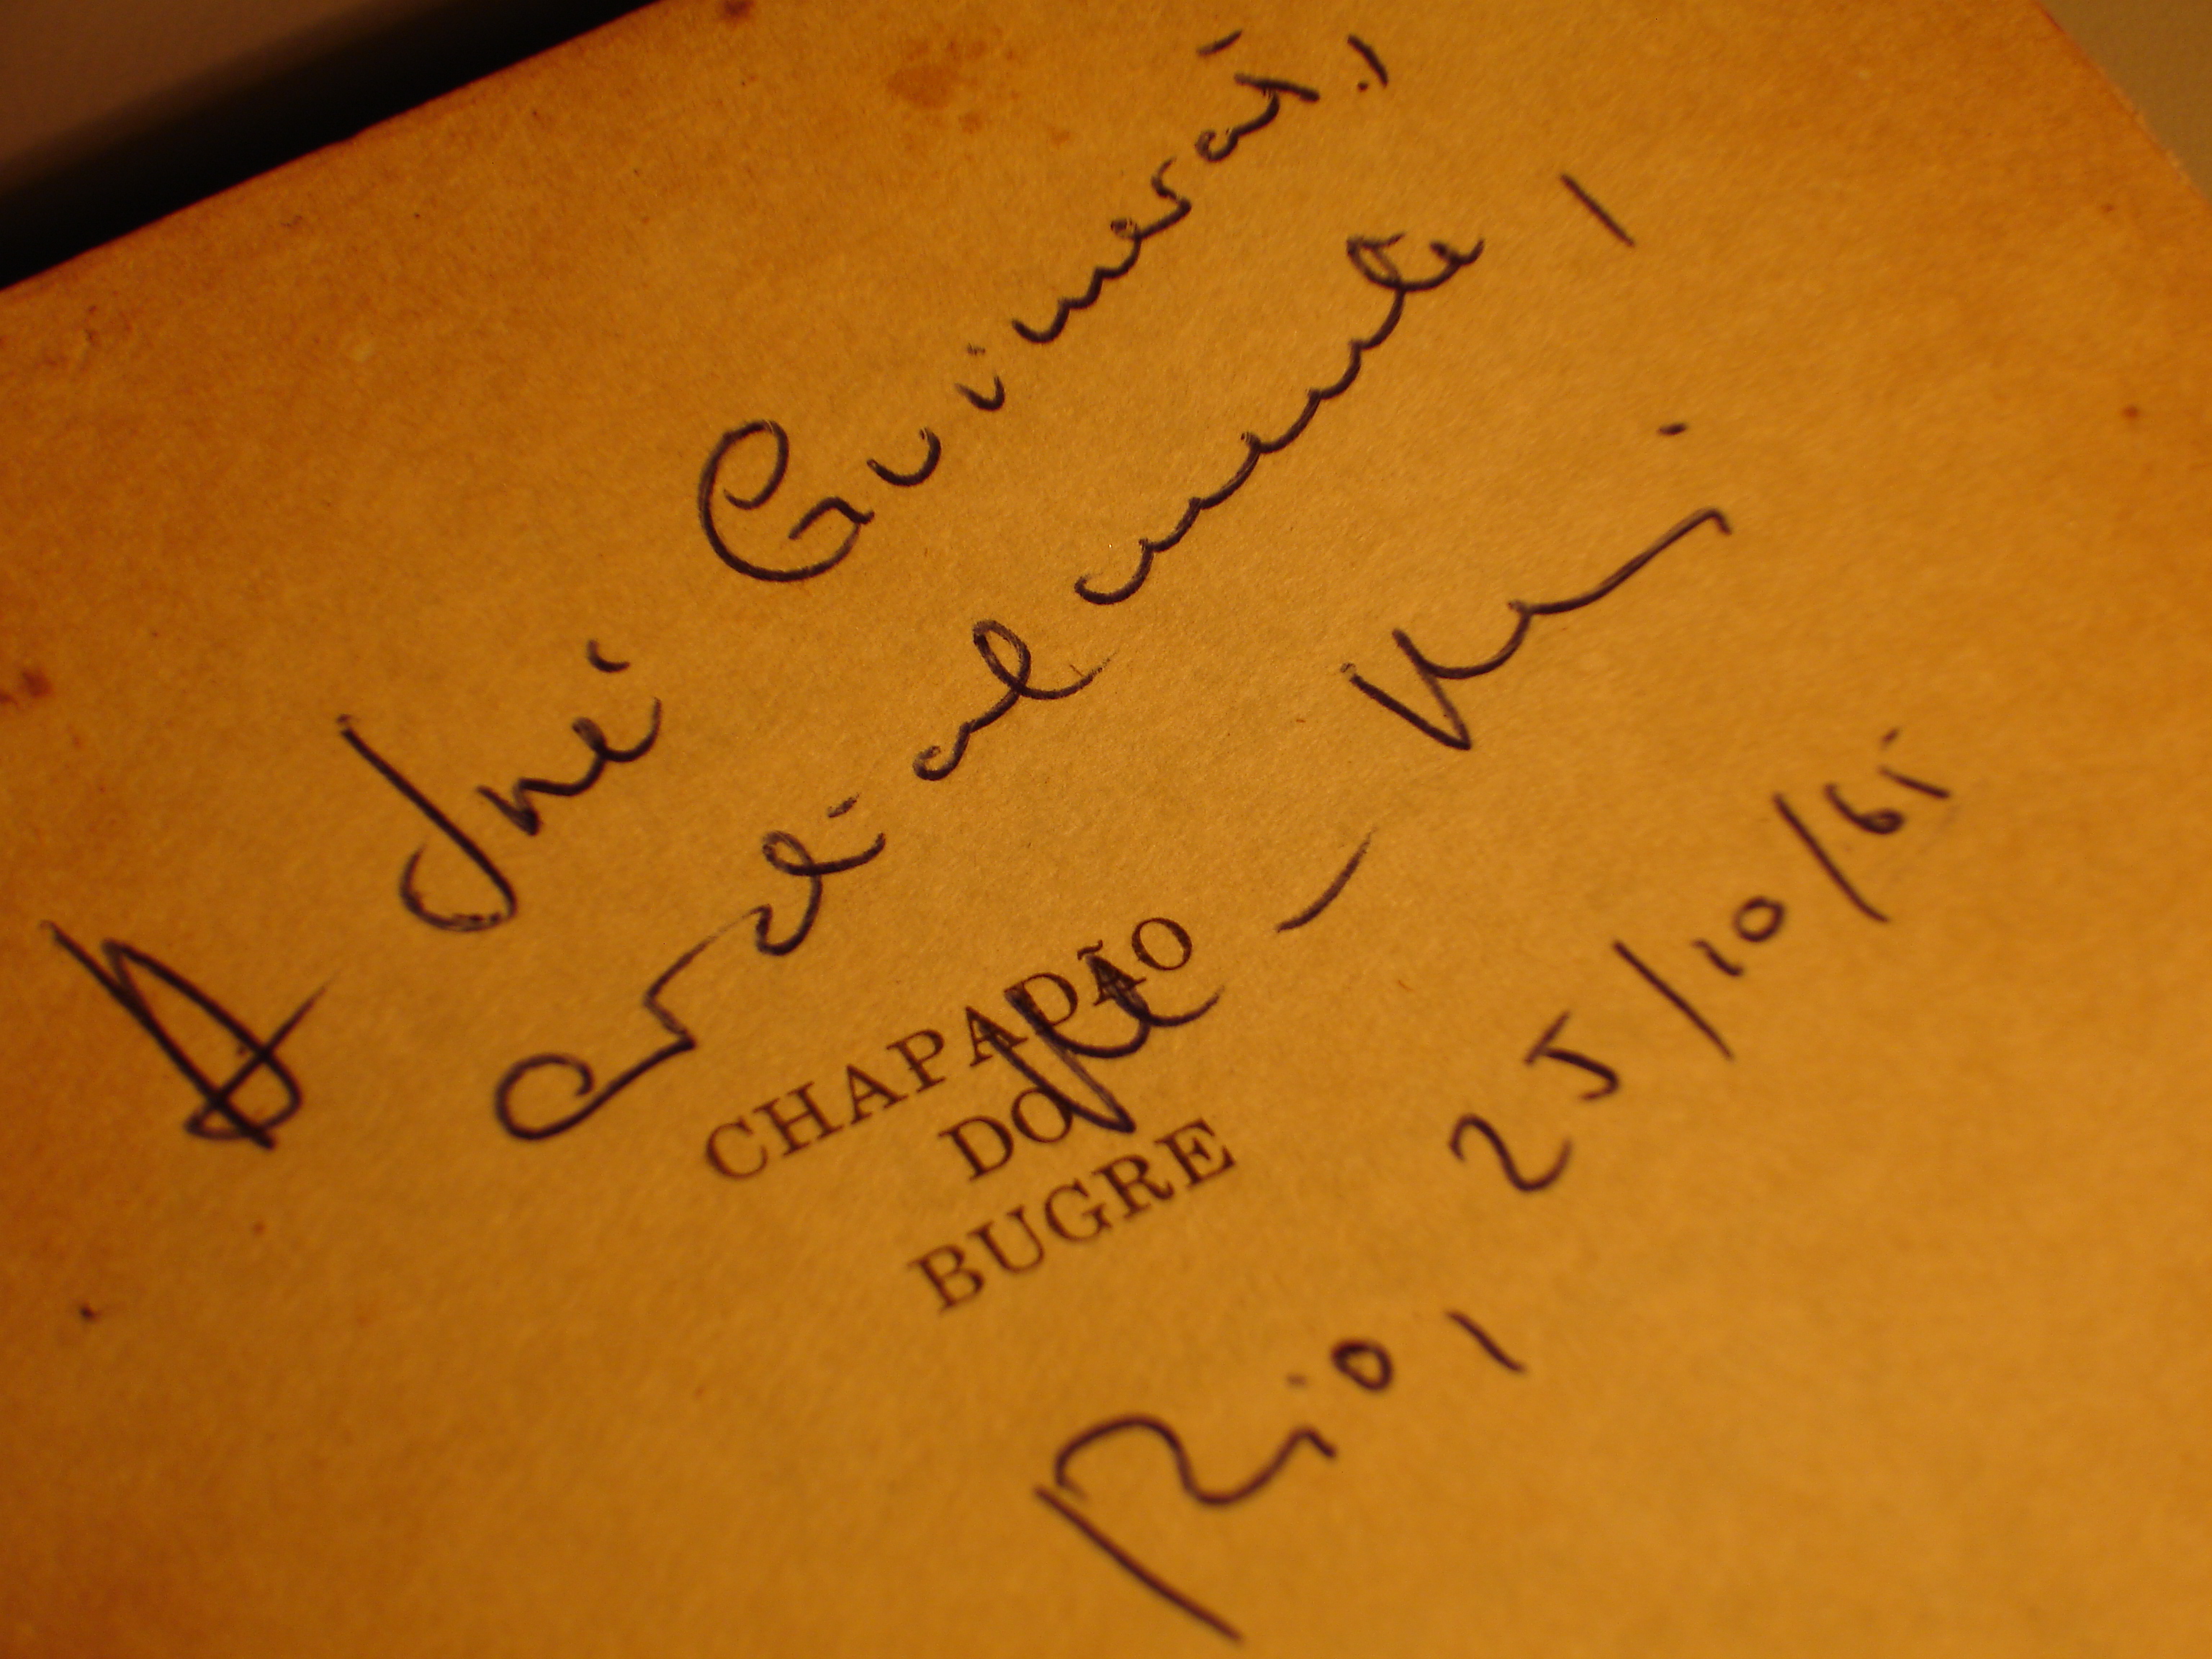 A José Guimarães,
cordialmente,
CHAPADÃO
DO
BUGRE
Rio, 25/10/65